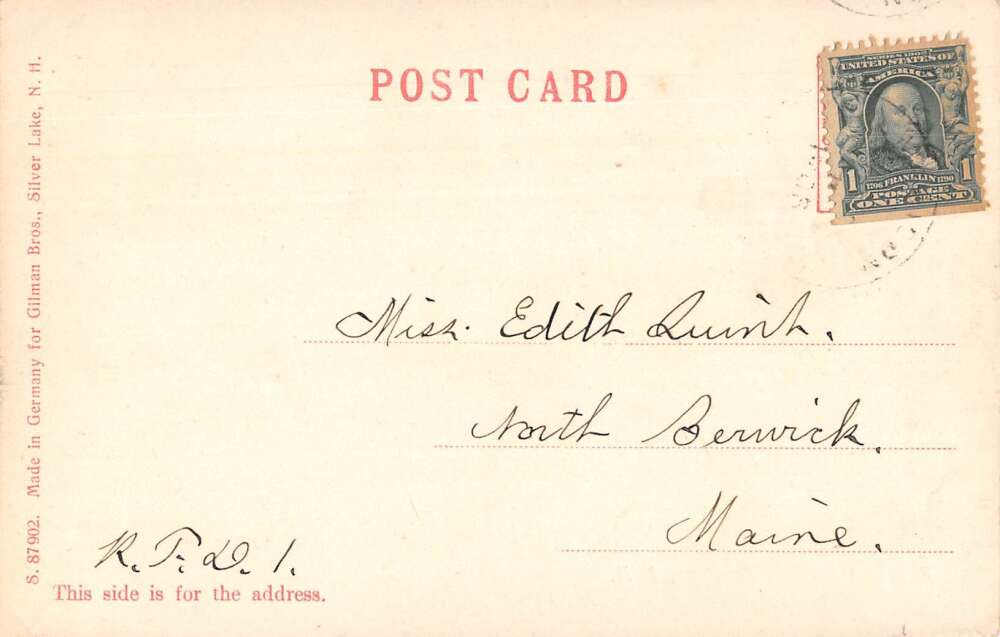 POST CARD
SERIES 1902
UNITED STATES OF
AMERICA
1 1
1706 FRANKLIN 1790
POSTAGE
ONE CENT
Miss. Edith Quint.
North Berwick.
Maine.
R. F. D. 1.
This side is for the address.
S. 87902. Made in Germany for Gilman Bros., Silver Lake, N. H.